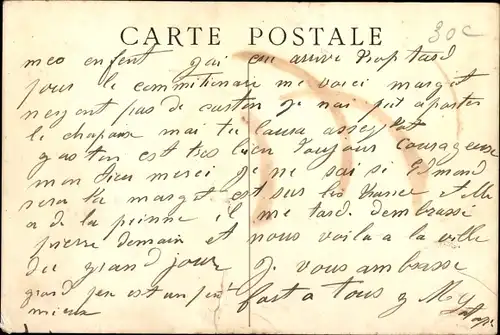 CARTE POSTALE
30c
mes enfent j'ai eu arrivé trop tard
pour le commitionaire me voici margit
neyent pas de carton je nai put aporter
le chapaux mai tu laura assez tot
gaston est tres bien toujour courageuse
mon Dieu merci je ne sai si Edmond
sera la margit est sur les et elle
a de la peinne il me tard dembrassé
pierre demain et nous voila a la ville
du grand jour je vous ambrasse
grand per est un peu fort a tous
mieux